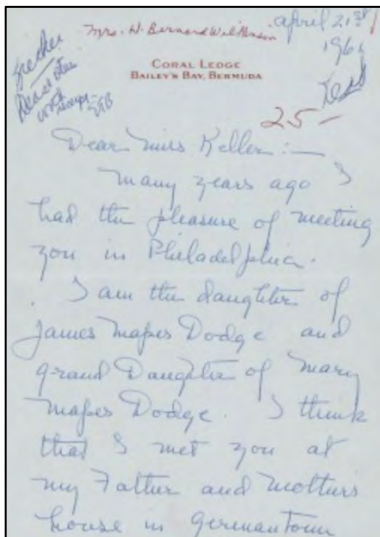 Mrs. H. Bernard Wilkinson
april 21st
196
CORAL LEDGE
BAILEY'S BAY, BERMUDA
25-
Dear Miss Keller:—
Many years ago I
had the pleasure of meeting
you in Philadelphia.
I am the daughter of
James Mapes Dodge and
grand Daughter of Mary
Mapes Dodge. I think
that I met you at
my Father and Mothers
house in Germantown